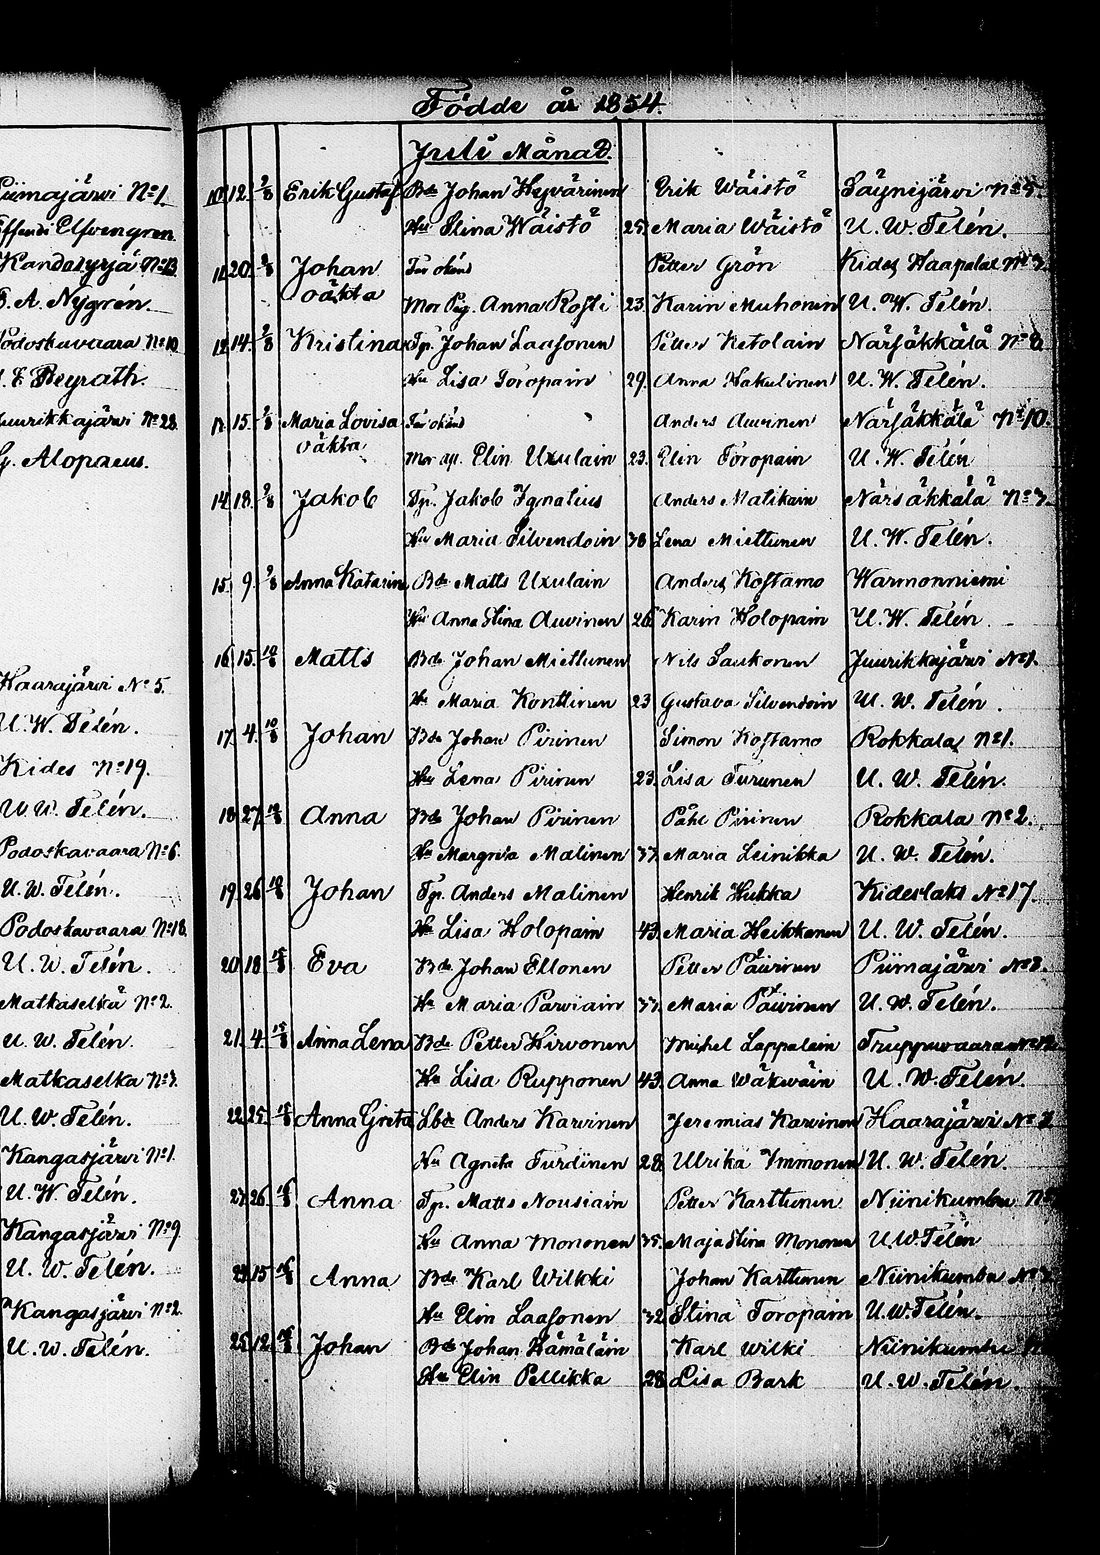 Piimajärvi No 1.
Effendi Elfvengren.
Kandasyrjä No 13
G. A. Nygrén.
Podoskavaara No 10
Beyrath.
Juurikkajärvi No 28
G. Alopaeus.
Haarajärvi No 5.
U. W. Telén.
Kides No 19.
U. W. Telén.
Podoskavaara No 6.
U. W. Telén.
Podoskavaara No 18.
U. W. Telén.
Matkaselkä No 2.
U. W. Telén.
Matkaselka No 3.
U. W. Telén.
Kangasjärvi No 1.
U. W. Telén.
Kangasjärvi No 9.
U. W. Telén.
Kangasjärvi No 2.
U. W. Telén.
Födde år 1854.
Juli Månad.
10. 12. 2/8 Erik Gustaf Bde Johan Heyvärinen Erik Wäistö Säynijärvi No 5.
Hu Stina Wäistö 25. Maria Wäistö U. W. Telén.
11. 20. 2/8 Johan Far okänd Petter Grön Kides Haapalax No 3.
oäkta Mor Pig. Anna Rosti 23. Karin Muhonen U. W. Telén.
12. 14. 2/8 Kristina Tp. Johan Laasonen Petter Ketolain Närsäkkälä No 2.
Hu Lisa Toropain 29. Anna Hakulinen U. W. Telén.
15. 2/8 Maria Lovisa Far okänd Anders Auvinen Närsäkkälä No 10.
oäkta Mor Elin Uxulain 23. Elin Toropain U. W. Telén
14. 18. 2/8 Jakob Tp. Jakob Ignatius Anders Matikain Närsäkkälä No 3.
Hu Maria Silvendoin 38 Lena Miettunen U. W. Telén.
15. 9. Anna Katarina Bde Matts Uxulain Anders Kostamo Warmonniemi
Hu Anna Stina Auvinen 26. Karin Holopain U. W. Telén.
16. 15. 10/8 Matts Bde Johan Miettunen Nils Saukonen Juurikkajärvi No 1.
Hu Maria Konttinen 23 Gustava Silvendoin U. W. Telén.
17. 4. 10/8 Johan Bde Johan Pirinen Simon Kostamo Rokkala No 1.
Hu Lena Pirinen 23. Lisa Turunen U. W. Telén.
18. 27. Anna Bde Johan Pirinen Påhl Pirinen Rokkala No 2.
Hu Margreta Malinen 37. Maria Leinikka U. W. Telén.
19. 26. Johan Tp. Anders Malinen Henrik Hukka Kideslaks No 17.
Hu Lisa Holopain 43. Maria Heikkanen U. W. Telén.
20. 18. Eva Bde Johan Ellonen Petter Päivinen Piimajärvi No 3.
Hu Maria Parviain 37. Maria Päivinen U. W. Telén.
21. 4. Anna Lena Bde Petter Hirvonen Michel Lappalain Truppuvaara No 12.
Hu Lisa Rupponen 43. Anna Wäkeväin U. W. Telén.
22. 25. Anna Greta Lbde Anders Karvinen Jeremias Karvinen Haarajärvi No
Hu Agneta Turdinen 28. Ulrika Immonen U. W. Telén.
23. 26. Anna Tp. Matts Nousiain Petter Karttunen Niinikumbu No
Hu Anna Mononen 35. Maja Stina Mononen U. W. Telén
15. Anna Bde Karl Wilkki Johan Karttunen Niinikumbu No
Hu Elin Laasonen 32 Stina Toropain U. W. Telén.
25. 12. Johan Bde Johan Hämäläin Karl Wilki Niinikumbu
Hu Elin Pellikka 28. Lisa Bark U. W. Telén.